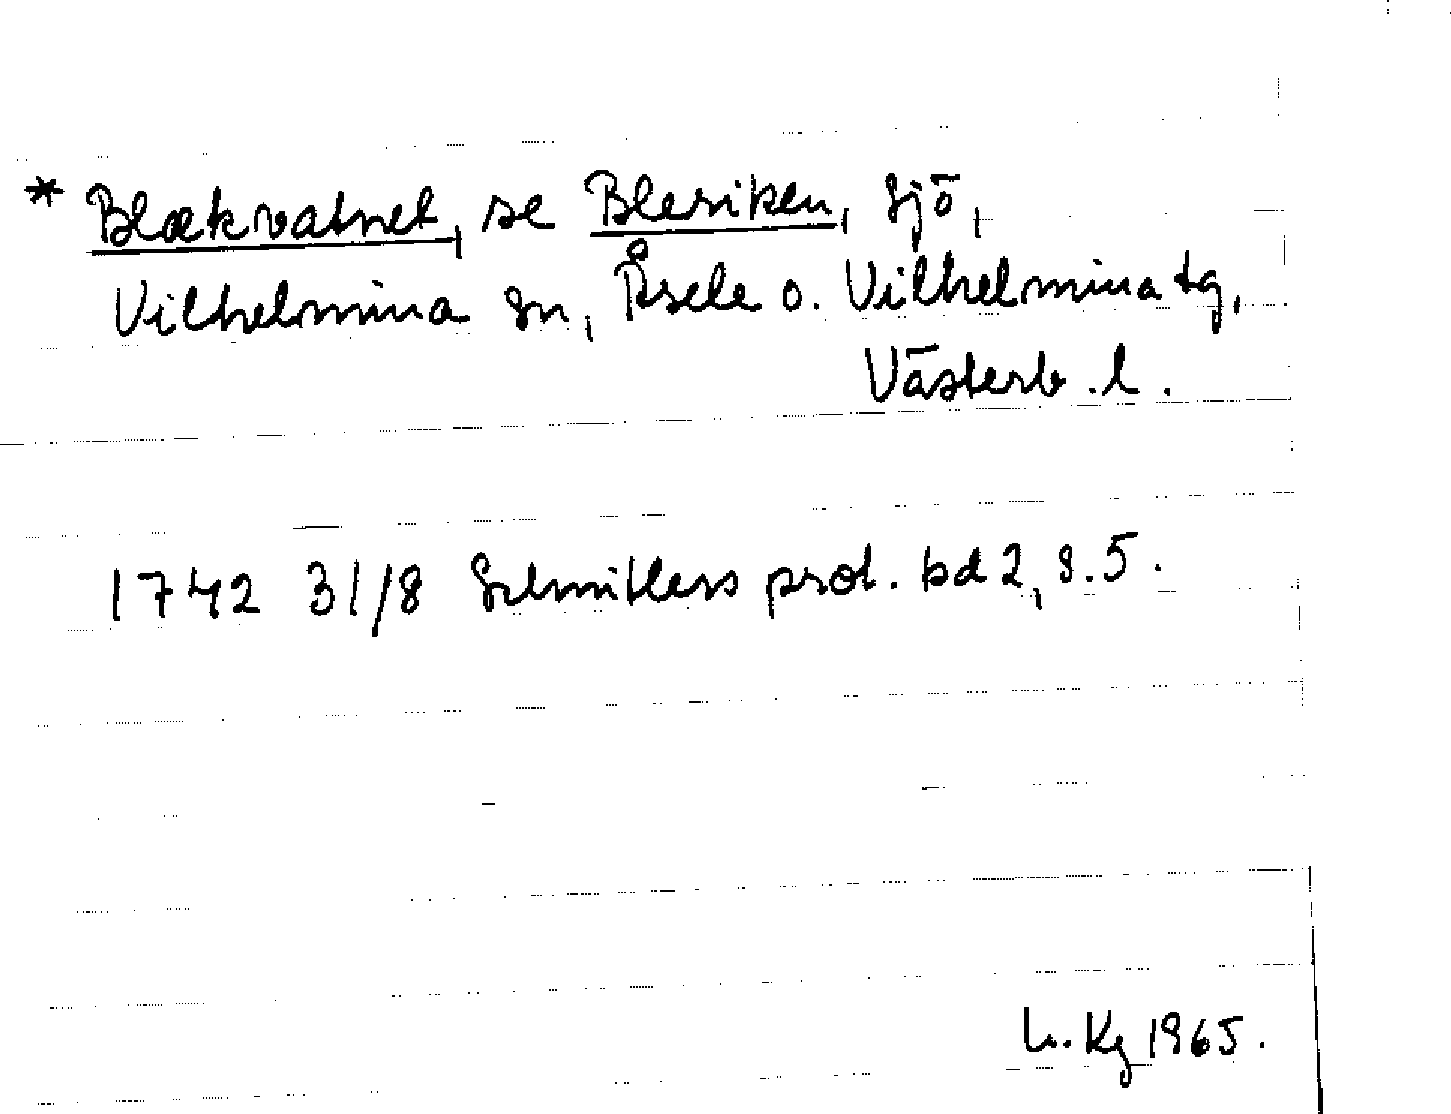 * Blækvatnet, se Bleriken, sjö,
Vilhelmina sn, Åsele o. Vilhelmina tg,
Västerb. l.
1742 31/8 Schnitlers prot. bd 2, s. 5.
Kg 1965.